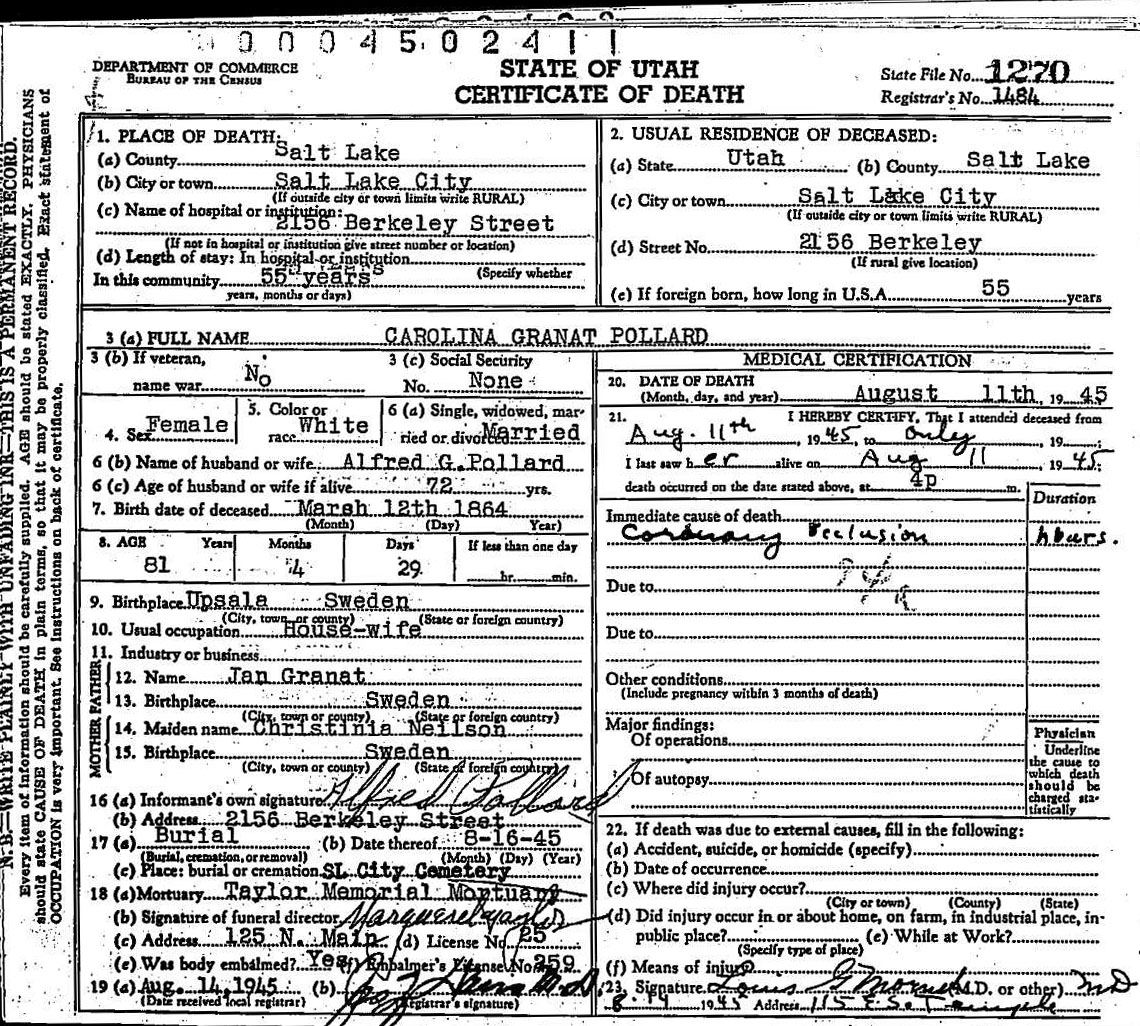 0004502411
DEPARTMENT OF COMMERCE
BUREAU OF THE CENSUS
STATE OF UTAH
CERTIFICATE OF DEATH
State File No. 1270
Registrar's No. 1484
N.B.—WRITE PLAINLY WITH UNFADING INK—THIS IS A PERMANENT RECORD.
Every item of information should be carefully supplied. AGE should be stated EXACTLY. PHYSICIANS
should state CAUSE OF DEATH in plain terms, so that it may be properly classified. Exact statement of
OCCUPATION is very important. See instructions on back of certificate.
1. PLACE OF DEATH:
(a) County Salt Lake
(b) City or town Salt Lake City
(If outside city or town limits write RURAL)
(c) Name of hospital or institution:
2156 Berkeley Street
(If not in hospital or institution give street number or location)
(d) Length of stay: In hospital or institution
(Specify whether
In this community 55 years
years, months or days)
2. USUAL RESIDENCE OF DECEASED:
(a) State Utah (b) County Salt Lake
(c) City or town Salt Lake City
(If outside city or town limits write RURAL)
(d) Street No. 2156 Berkeley
(If rural give location)
(e) If foreign born, how long in U.S.A. 55 years
3 (a) FULL NAME CAROLINA GRANAT POLLARD
3 (b) If veteran,
name war No
3 (c) Social Security
No. None
4. Sex Female
5. Color or
race White
6 (a) Single, widowed, mar-
ried or divorced Married
6 (b) Name of husband or wife Alfred G. Pollard
6 (c) Age of husband or wife if alive 72 yrs.
7. Birth date of deceased Marsh 12th 1864
(Month) (Day) Year)
8. AGE Years Months Days If less than one day
81 4 29 hr. min.
9. Birthplace Upsala Sweden
(City, town or county) (State or foreign country)
10. Usual occupation House-wife
11. Industry or business
FATHER
12. Name Jan Granat
13. Birthplace Sweden
(City, town or county) (State or foreign country)
MOTHER
14. Maiden name Christinia Neilson
15. Birthplace Sweden
(City, town or county) (State or foreign country)
16 (a) Informant's own signature Alfred Pollard
(b) Address 2156 Berkeley Street
17 (a) Burial (b) Date thereof 8-16-45
(Burial, cremation, or removal) (Month) (Day) (Year)
(c) Place: burial or cremation SL City Cemetery
18 (a) Mortuary Taylor Memorial Mortuary
(b) Signature of funeral director
(c) Address 125 N. Main (d) License No 25
(e) Was body embalmed? Yes (f) Embalmer's License No 259
19 (a) Aug. 14, 1945 (b) M.D.
(Date received local registrar) Registrar's signature)
MEDICAL CERTIFICATION
20. DATE OF DEATH
(Month, day, and year) August 11th, 1945
21. I HEREBY CERTIFY, That I attended deceased from
Aug. 11th, 1945, to only, 19
I last saw her alive on Aug 11, 1945;
death occurred on the date stated above, at 4p m.
Duration
Immediate cause of death
Coronary Occlusion hours.
Due to
Due to
Other conditions
(Include pregnancy within 3 months of death)
Major findings:
Of operations
Of autopsy
Physician
Underline
the cause to
which death
should be
charged sta-
tistically
22. If death was due to external causes, fill in the following:
(a) Accident, suicide, or homicide (specify)
(b) Date of occurrence
(c) Where did injury occur?
(City or town) (County) (State)
(d) Did injury occur in or about home, on farm, in industrial place, in-
public place? (e) While at Work?
(Specify type of place)
(f) Means of injury
23. Signature Louis (M.D. or other) MD
8-14 1945 Address 115 E. So. Temple